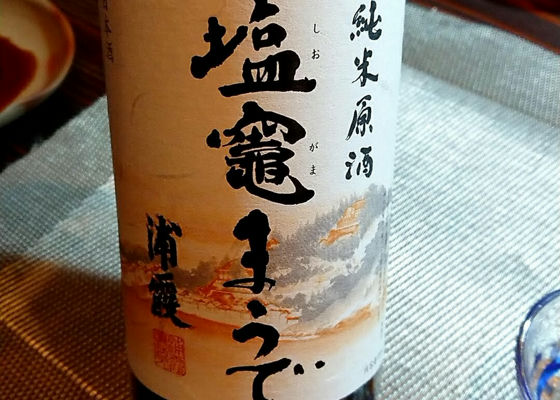 純米原酒
しおがま
塩竈まうで
浦霞
日本酒